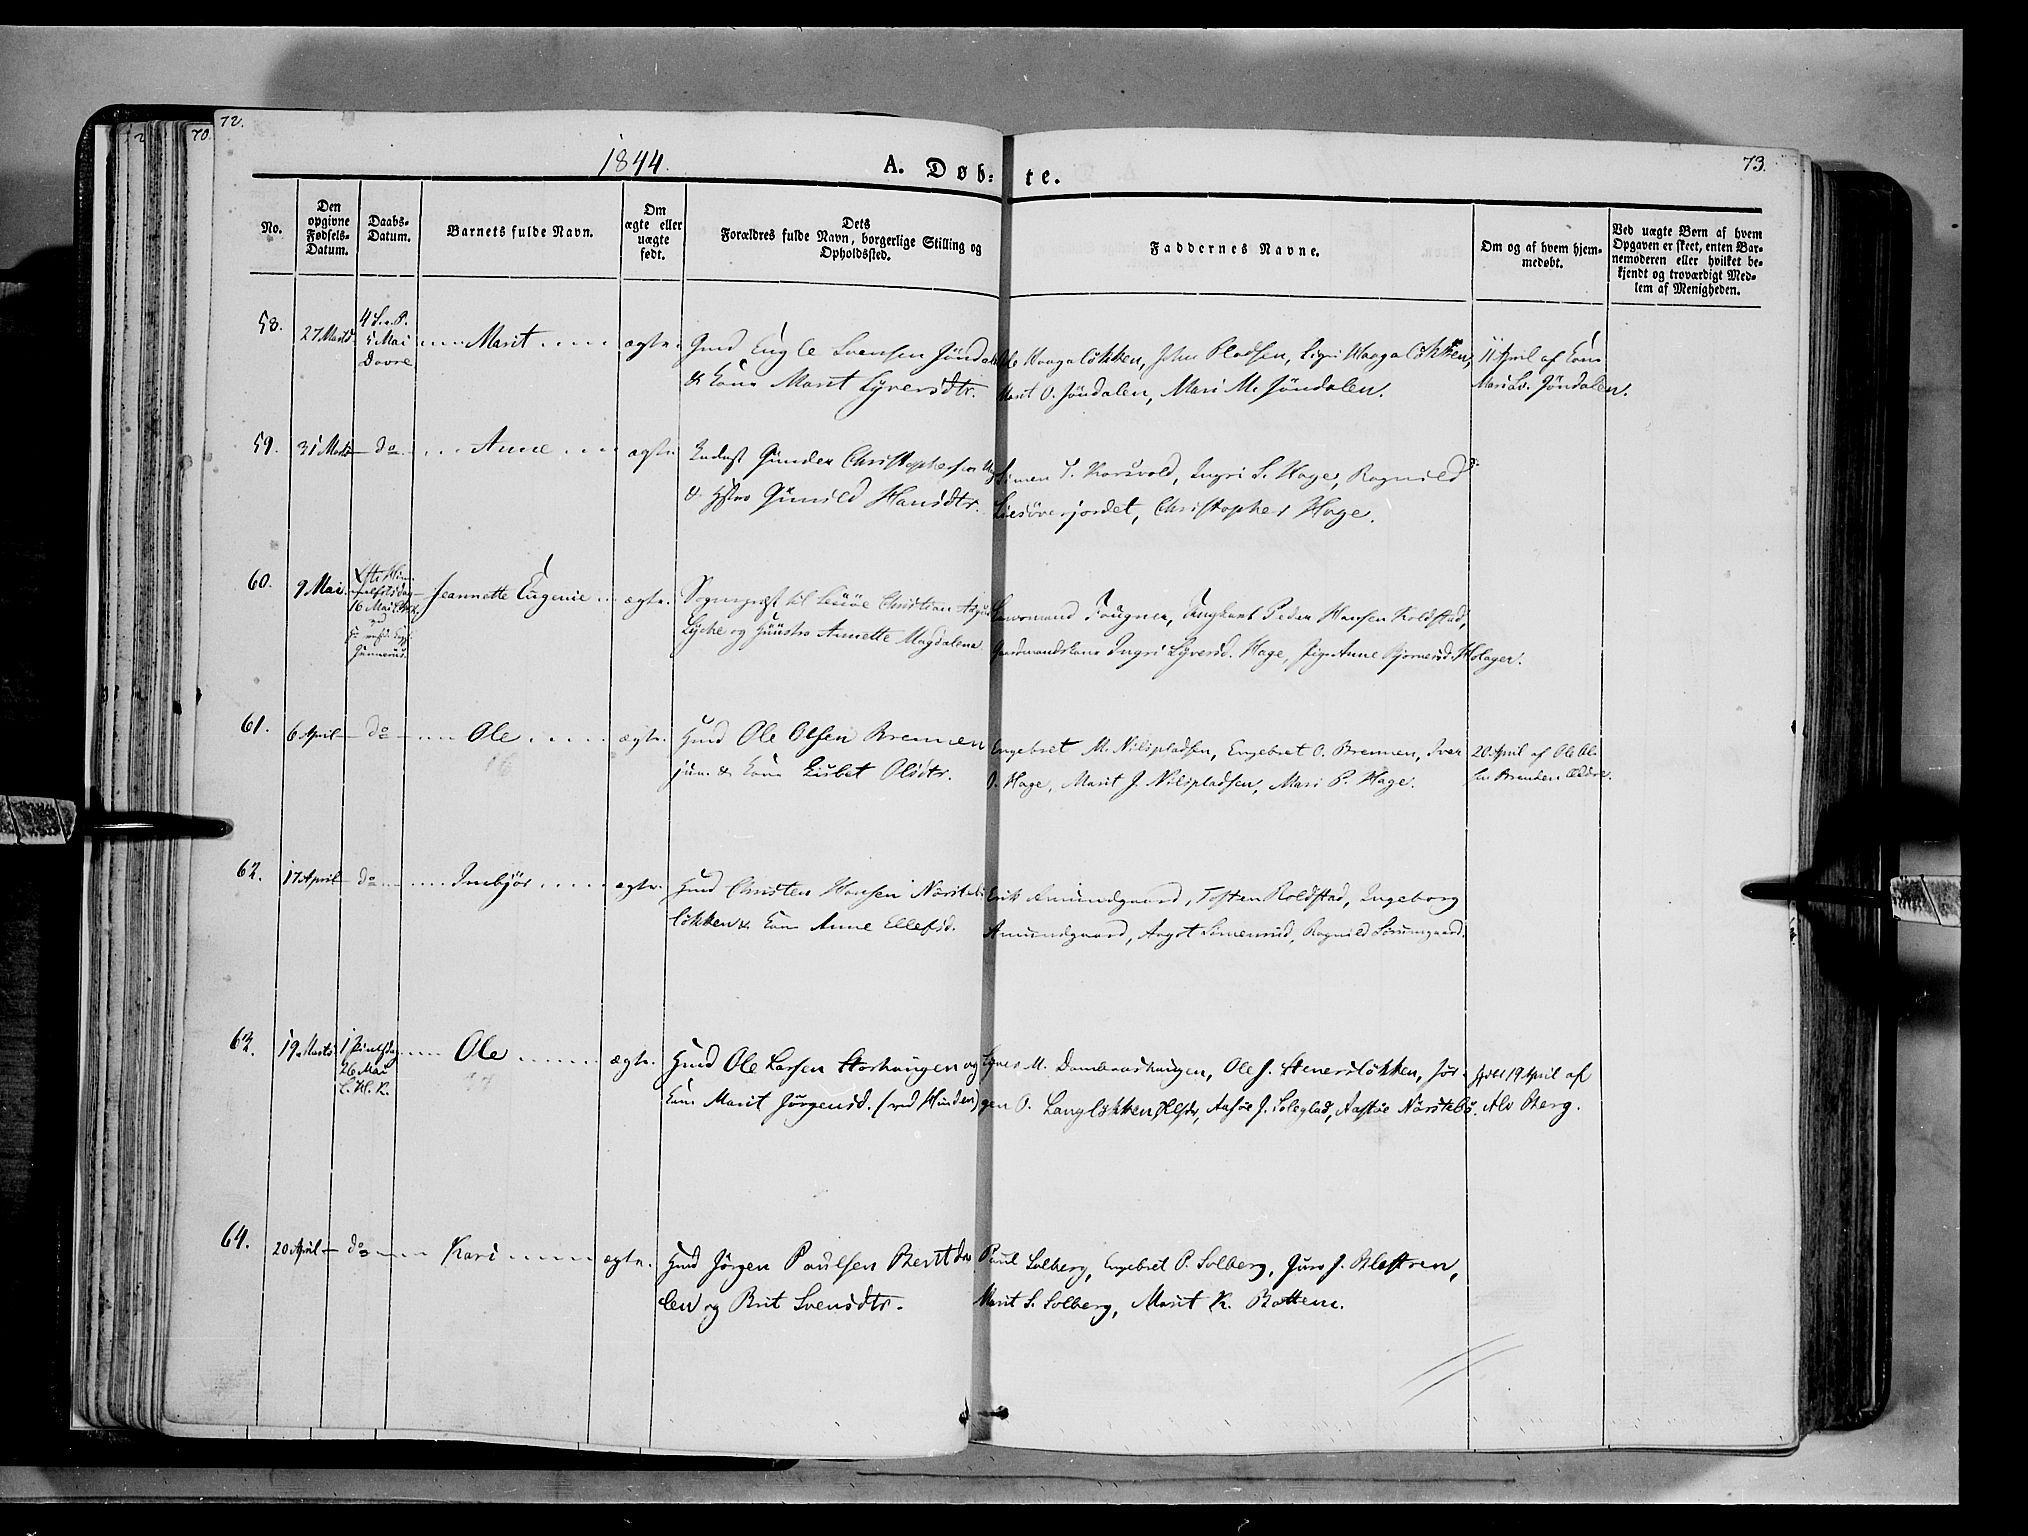 72.
70.
73.
1844.
A. Døb- te.
No.
Den opgivne Fødsels-Datum.
Daabs-Datum.
Barnets fulde Navn.
Om ægte eller uægte født.
Dets Forældres fulde Navn, borgerlige Stilling og Opholdssted.
Faddernes Navne.
Om og af hvem hjem-medøbt.
Ved uægte Børn af hvem Opgaven er skeet, enten Bar-nemoderen eller hvilket be-kjendt og troværdigt Med-lem af Menigheden.
58.
27 Marts
5 Mai
Dovre
Marit
ægte.
Gmd Engle Svensen
& Kone Marit Syversdtr.
John Pladsen, Sigri Haagaløkken,
Marit O. Jöndalen, Mari M. Jöndalen.
11 April af Kone
Jöndalen.
59.
31 Marts
do
Anne
ægte.
Gunder Christophersen
& Hstro Gunild Hansdtr.
Simen T. Korsvold, Ingri S. Hage, Ragnild
Christopher Hage.
60.
9 Mai.
16 Mai
Jeannette Eugenie
ægte.
Sognepræst til Lessöe Christian August
og Huustro Annette Magdalene
Fougner, Peder Hansen Koldstad,
Gaardmandskone Ingri Syversd. Hage, Pige Anne Bjørnersd. Holager.
61.
6 April
do
Ole
16
ægte.
Gmd Ole Olsen Brennen
jun. & Kone Lisbet Olsdtr.
Engebret M. Nilspladsen, Engebret O. Brennen, Iver
O. Hage, Marit J. Nilspladsen, Mari P. Hage.
20 April af Ole Ol-
sen Brenden ældre.
62.
17 April
do
Imbjör
ægte.
Hmd Christen Hansen
løkken & Kone Anne Ellefsd.
Erik Amundgaard, Tosten Koldstad, Ingeborg
Amundgaard, Ragnild Sörumgaard.
63.
19 Marts
1 Pintsdag
26 Mai
L. H. K.
Ole
17
ægte.
Hmd Ole Larsen Storhaugen og
Kone Marit Jörgensd.
Syver M. Dombaashaugen, Ole J. Stenersløkken, Jör-
gen O. Langløkken, J. Soleglad,
19 April af
Berg.
64.
20 April
do
Kari
ægte.
Hmd Jörgen Paulsen
len og Brit Svensdtr.
Paul Solberg, Engebret P. Solberg, Guro J.
Marit S. Solberg, Marit K. Bottem.